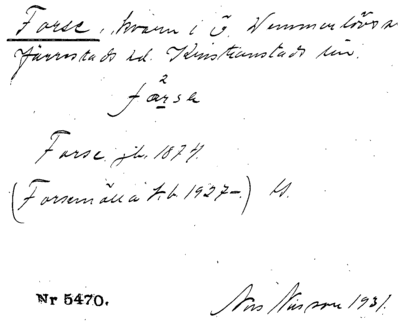 Forse, kvarn i Ö. Vemmerlövs s
Järrestads hd. Kristianstads län.
2
farsa
Forse jb. 1874.
(Forsemölla kb 1927–) U.
Nr 5470.
Nils Nilsson 1931.